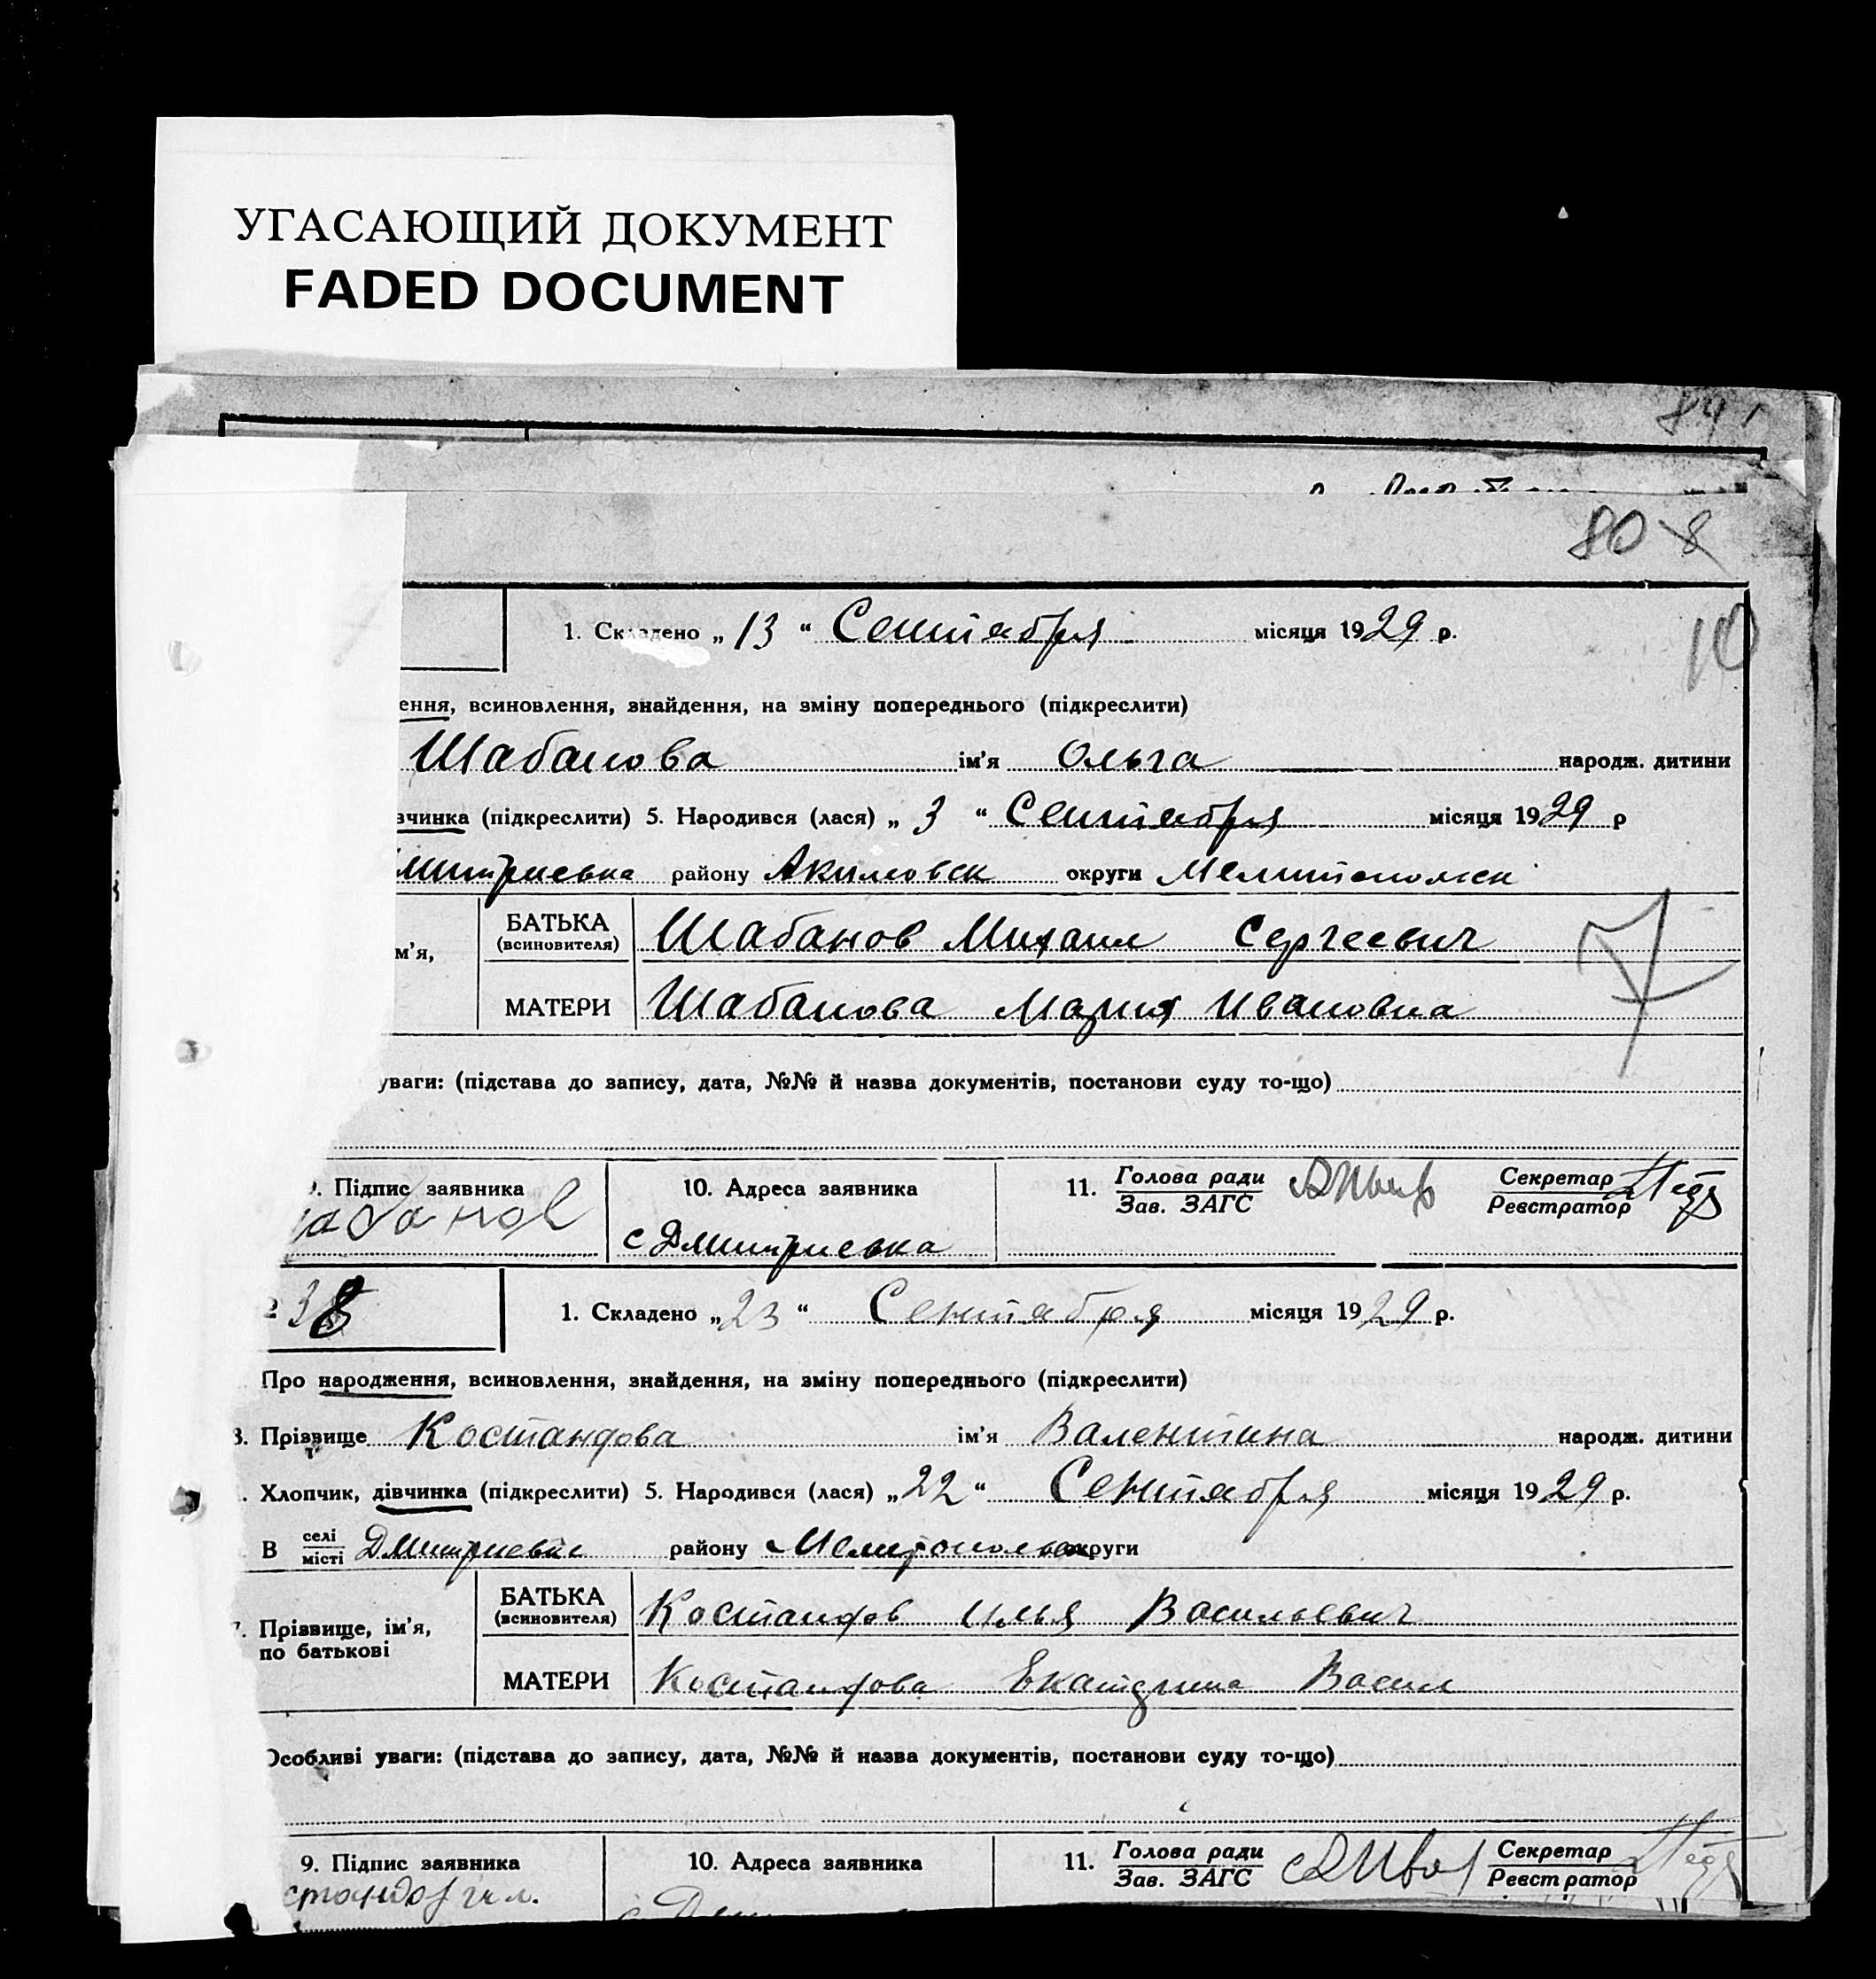 УГАСАЮЩИЙ ДОКУМЕНТ
FADED DOCUMENT
84
80 8
1. Складено „ 13 “ Сентября місяця 1929 р.
10
ення, всиновлення, знайдення, на зміну попереднього (підкреслити)
Шабанова ім’я Ольга народж. дитини
вчинка (підкреслити) 5. Народився (лася) „ 3 “ Сентября місяця 1929 р
митриевка району Акимовск округи Мелитопольск
БАТЬКА
(всиновителя) Шабанов Михаил Сергеевич
м’я,
МАТЕРИ Шабанова Мария Ивановна
7
уваги: (підстава до запису, дата, №№ й назва документів, постанови суду то-що)
9. Підпис заявника 10. Адреса заявника 11. Голова ради Секретар
Зав. ЗАГС Реєстратор
абанов с Дмитриевка
38 1. Складено „ 23 “ Сентября місяця 1929 р.
Про народження, всиновлення, знайдення, на зміну попереднього (підкреслити)
3. Прізвище Костандова ім’я Валентина народж. дитини
Хлопчик, дівчинка (підкреслити) 5. Народився (лася) „ 22 “ Сентября місяця 1929 р.
В селі
місті Дмитриевке району Мелитопольск округи
БАТЬКА
(всиновителя) Костандов Илья Васильевич
7. Прізвище, ім’я,
по батькові
МАТЕРИ Костандова Екатерина Васил
Особливі уваги: (підстава до запису, дата, №№ й назва документів, постанови суду то-що)
9. Підпис заявника 10. Адреса заявника 11. Голова ради Секретар
Зав. ЗАГС Реєстратор